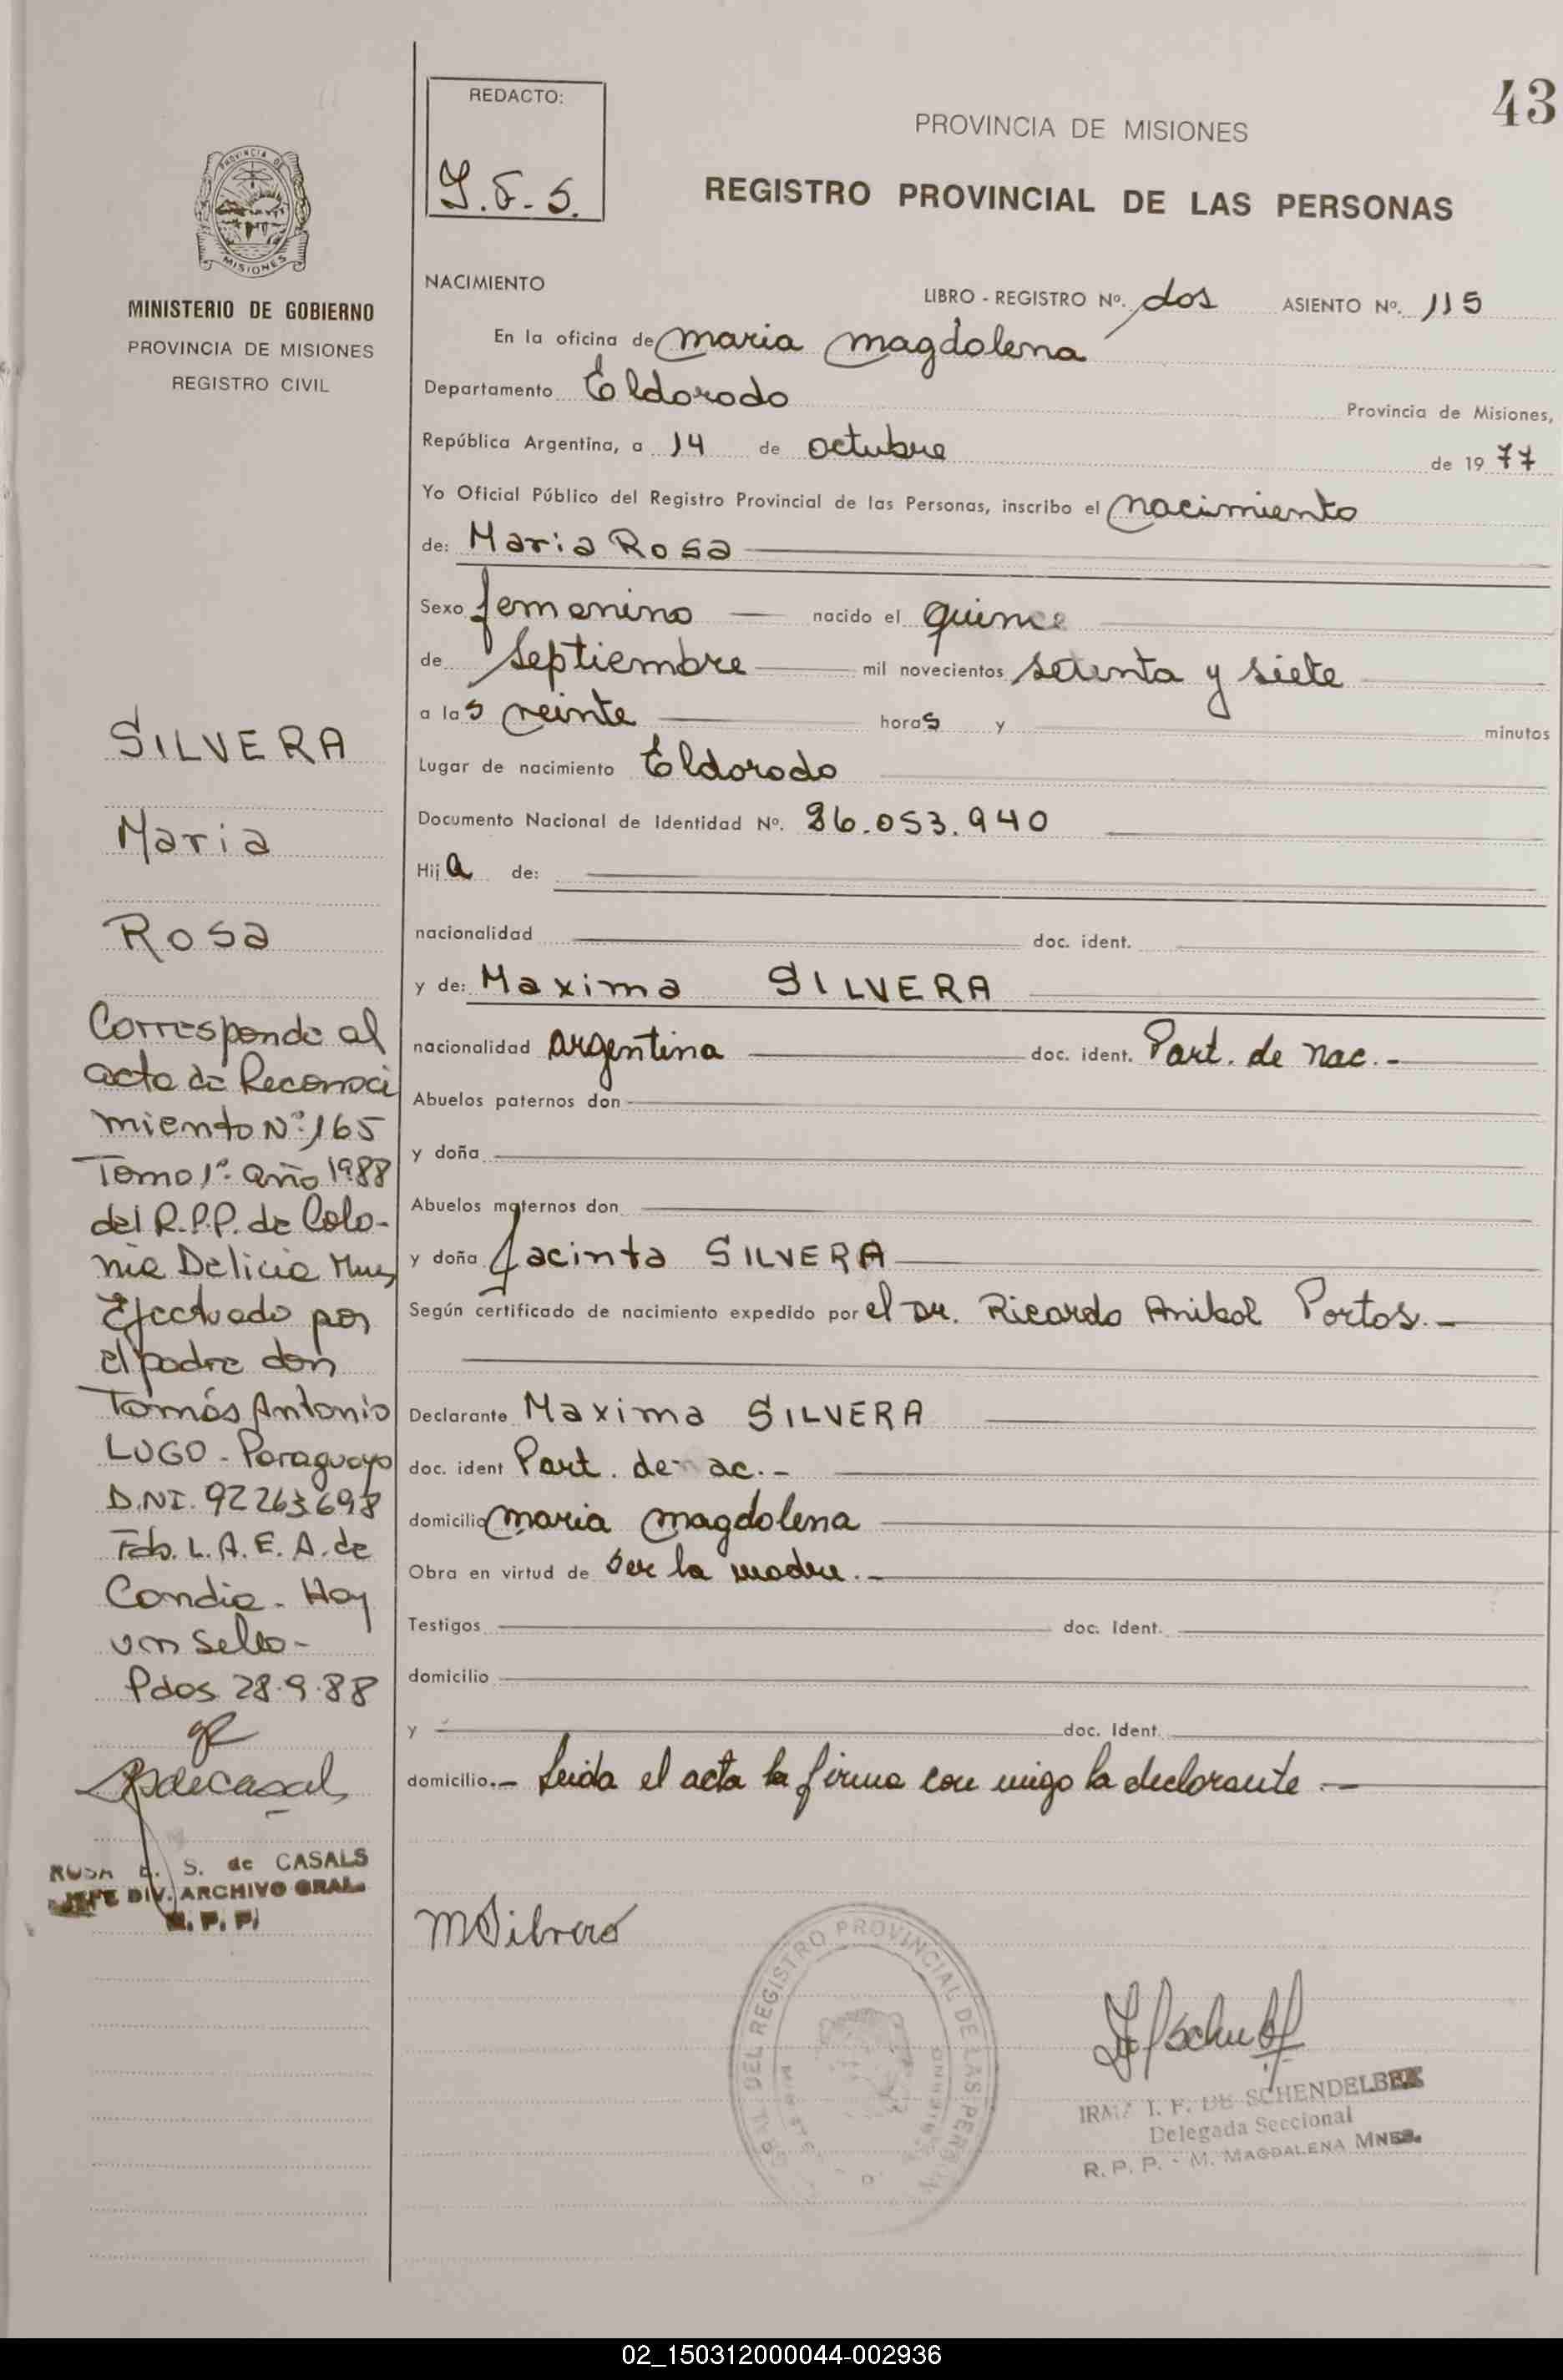 43
REDACTO:
PROVINCIA DE MISIONES
REGISTRO PROVINCIAL DE LAS PERSONAS
PROVINCIA DE
MISIONES
MINISTERIO DE GOBIERNO
PROVINCIA DE MISIONES
REGISTRO CIVIL
NACIMIENTO
LIBRO - REGISTRO Nº. dos ASIENTO Nº. 115
En la oficina de maria magdalena
Departamento Eldorado Provincia de Misiones,
República Argentina, a 14 de octubre de 1977
Yo Oficial Público del Registro Provincial de las Personas, inscribo el nacimiento
de: Maria Rosa
Sexo femenino nacido el quince
de septiembre mil novecientos setenta y siete
a las veinte horas y minutos
Lugar de nacimiento Eldorado
Documento Nacional de Identidad Nº. 26.053.940
Hija de:
nacionalidad doc. ident.
y de: Maxima SILVERA
nacionalidad argentina doc. ident. Part. de nac.-
Abuelos paternos don
y doña
Abuelos maternos don
y doña Jacinta SILVERA
Según certificado de nacimiento expedido por el Dr. Ricardo Anibal Portos.-
Declarante Maxima SILVERA
doc. ident Part. de ac.-
domicilio maria magdalena
Obra en virtud de ser la madre.-
Testigos doc. Ident.
domicilio
y doc. Ident.
domicilio.- Leida el acta la firma con migo la declarante.-
SILVERA
Maria
Rosa
Corresponde al
acta de Reconoci
miento Nº 165
Tomo 1º año 1988
del R.P.P. de Colo-
nia Delicia Mnes
Efectuado por
el padre don
Tomás Antonio
LUGO - Paraguayo
D.N.I. 92263698
Fdo. L. A. E. A. de
Candia - Hay
un sello-
Pdas 28.9.88
ROSA E. S. de CASALS
JEFE DIV. ARCHIVO GRAL.
R. P. P.
MSilvera
DEL REGISTRO PROVINCIAL DE LAS PERS
IRMA I. F. DE SCHENDELBEK
Delegada Seccional
R. P. P. - M. MAGDALENA MNES.
02_150312000044-002936